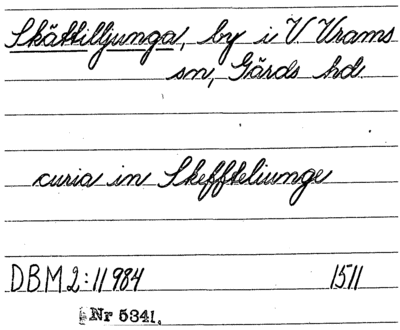 Skättilljunga, by i V. Vrams
sn, Gärds hd.
curia in Skeffteliunge
DBM 2:11984 1511
Nr 5341.